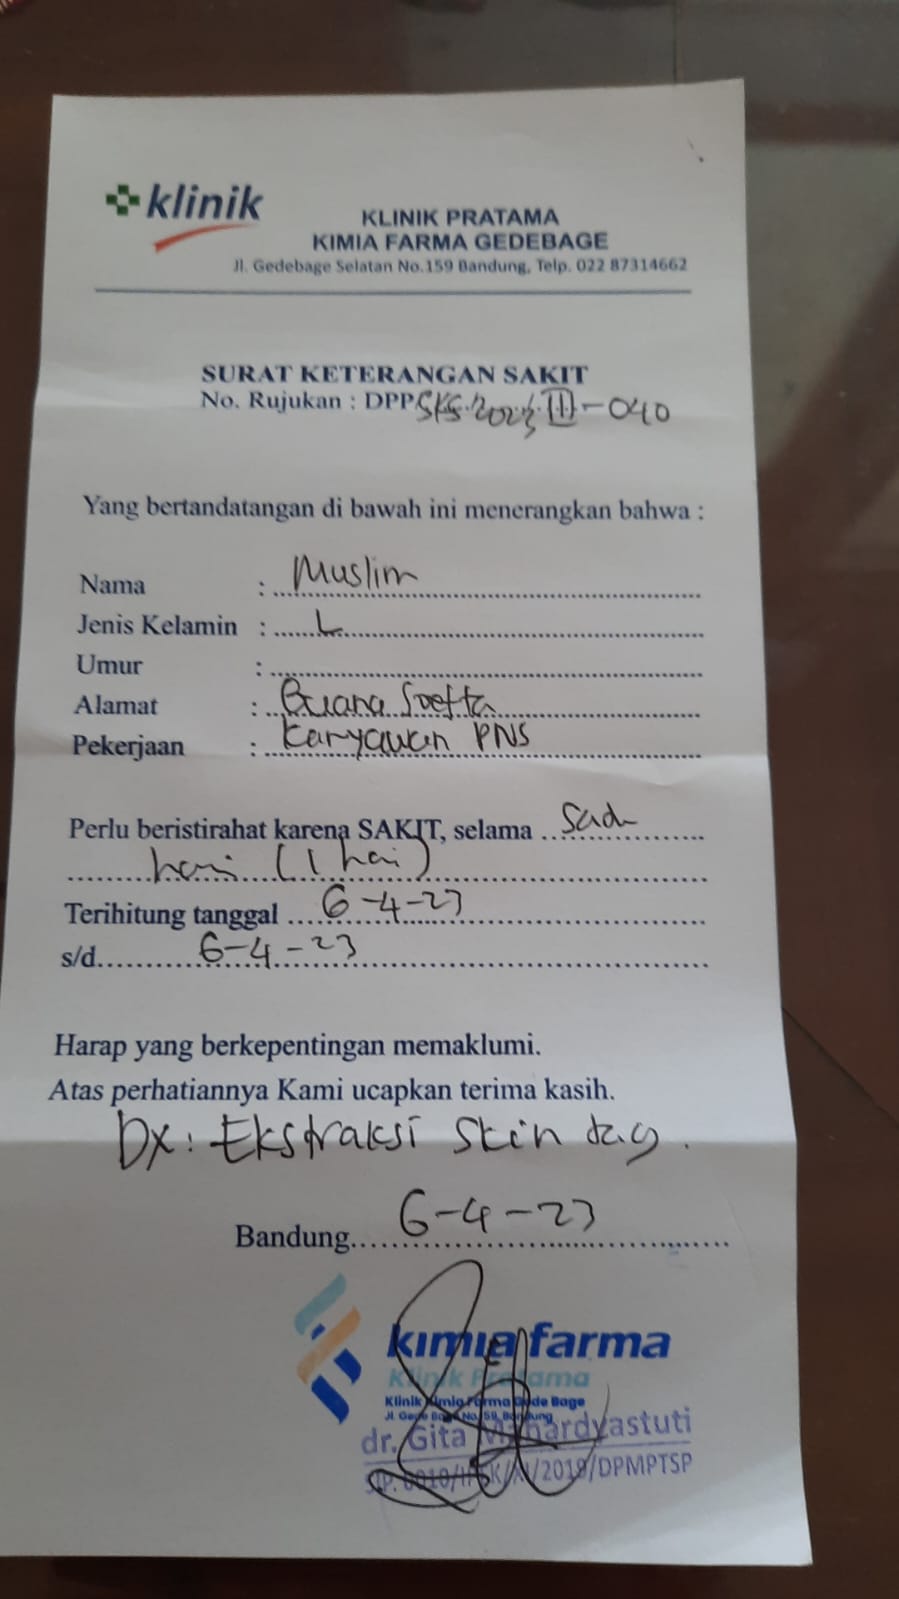 klinik
KLINIK PRATAMA
KIMIA FARMA GEDEBAGE
Jl. Gedebage Selatan No.159 Bandung, Telp. 022 87314662
SURAT KETERANGAN SAKIT
No. Rujukan : DPP SKS 2023 III-040
Yang bertandatangan di bawah ini menerangkan bahwa :
Nama : Muslim
Jenis Kelamin : L
Umur :
Alamat : Buana Soetta
Pekerjaan : Karyawan PNS
Perlu beristirahat karena SAKIT, selama Satu
hari (1 hari)
Terihitung tanggal 6-4-23
s/d 6-4-23
Harap yang berkepentingan memaklumi.
Atas perhatiannya Kami ucapkan terima kasih.
Dx: Ekstraksi Skin tag.
Bandung 6-4-23
kimia farma
Klinik Pratama
Klinik Kimia Farma Gede Bage
Jl. Gede Bage No. 159, Bandung
dr. Gita Mahardyastuti
/2019/DPMPTSP